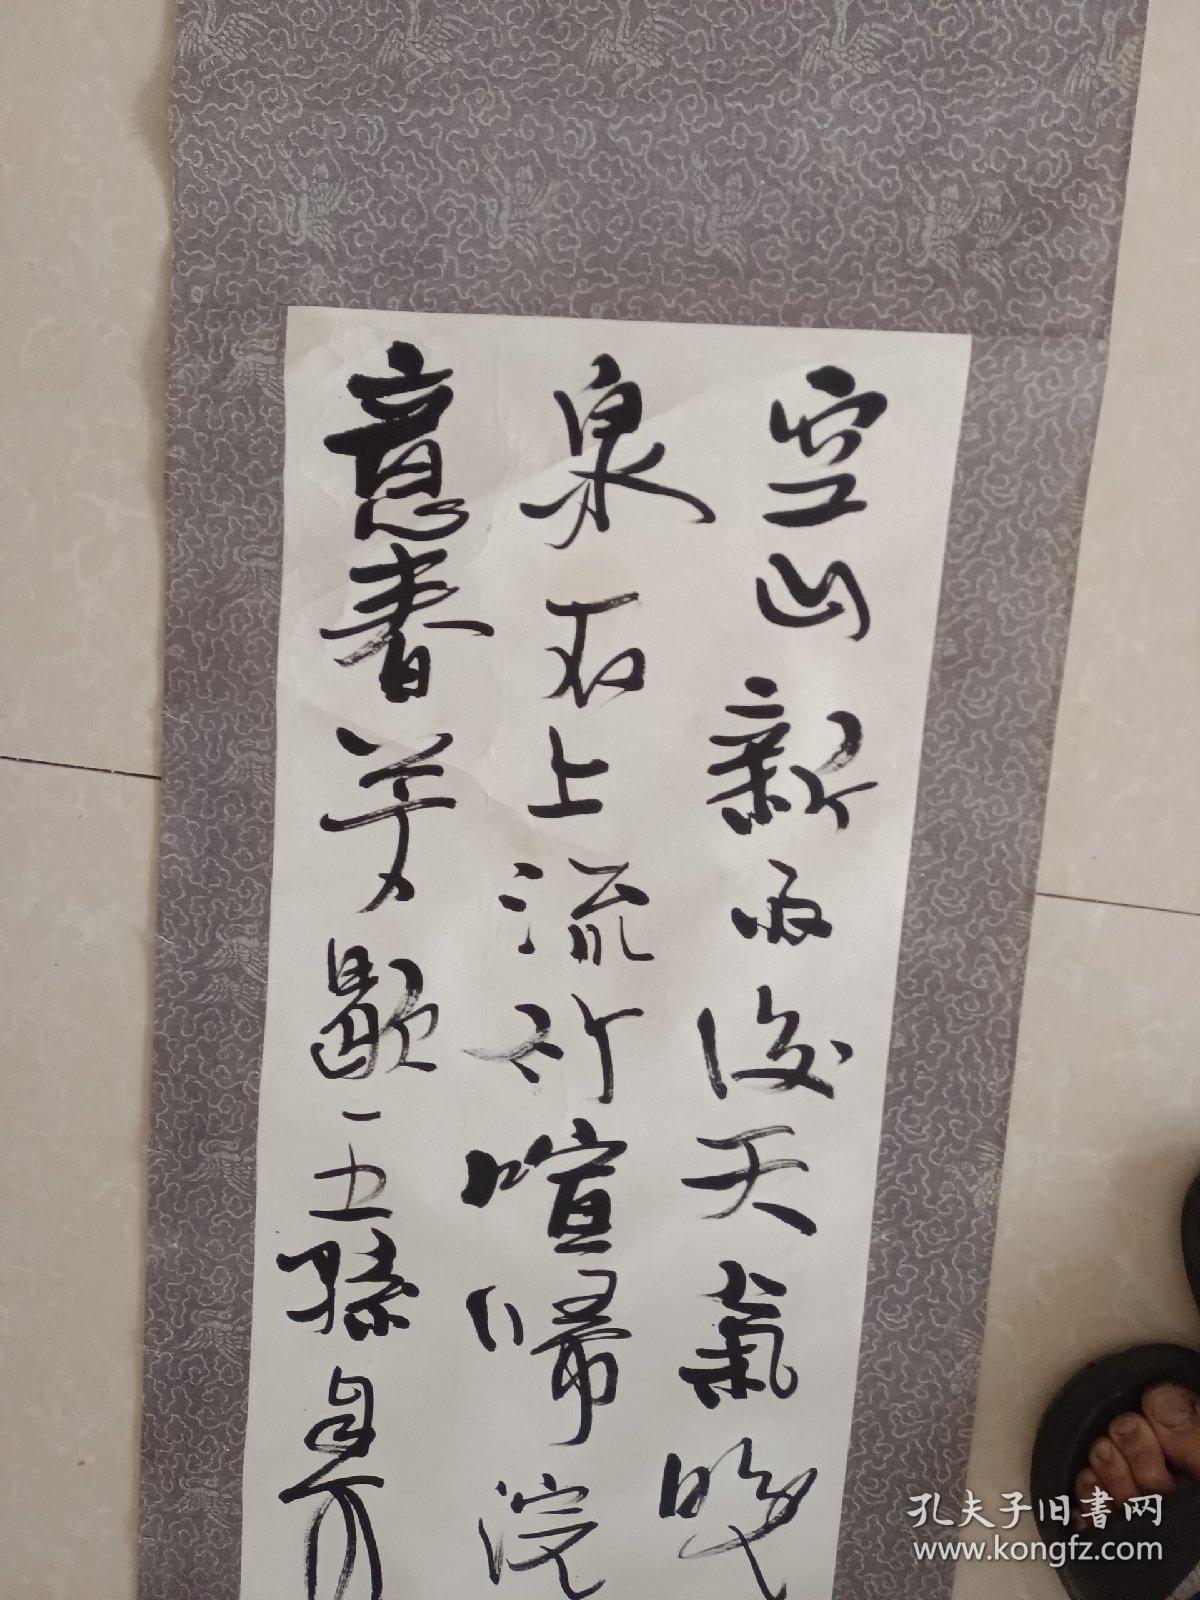 空山新雨後天氣晚
泉石上流竹喧歸浣
意春芳歇王孫自可
孔夫子旧书网
www.kongfz.com